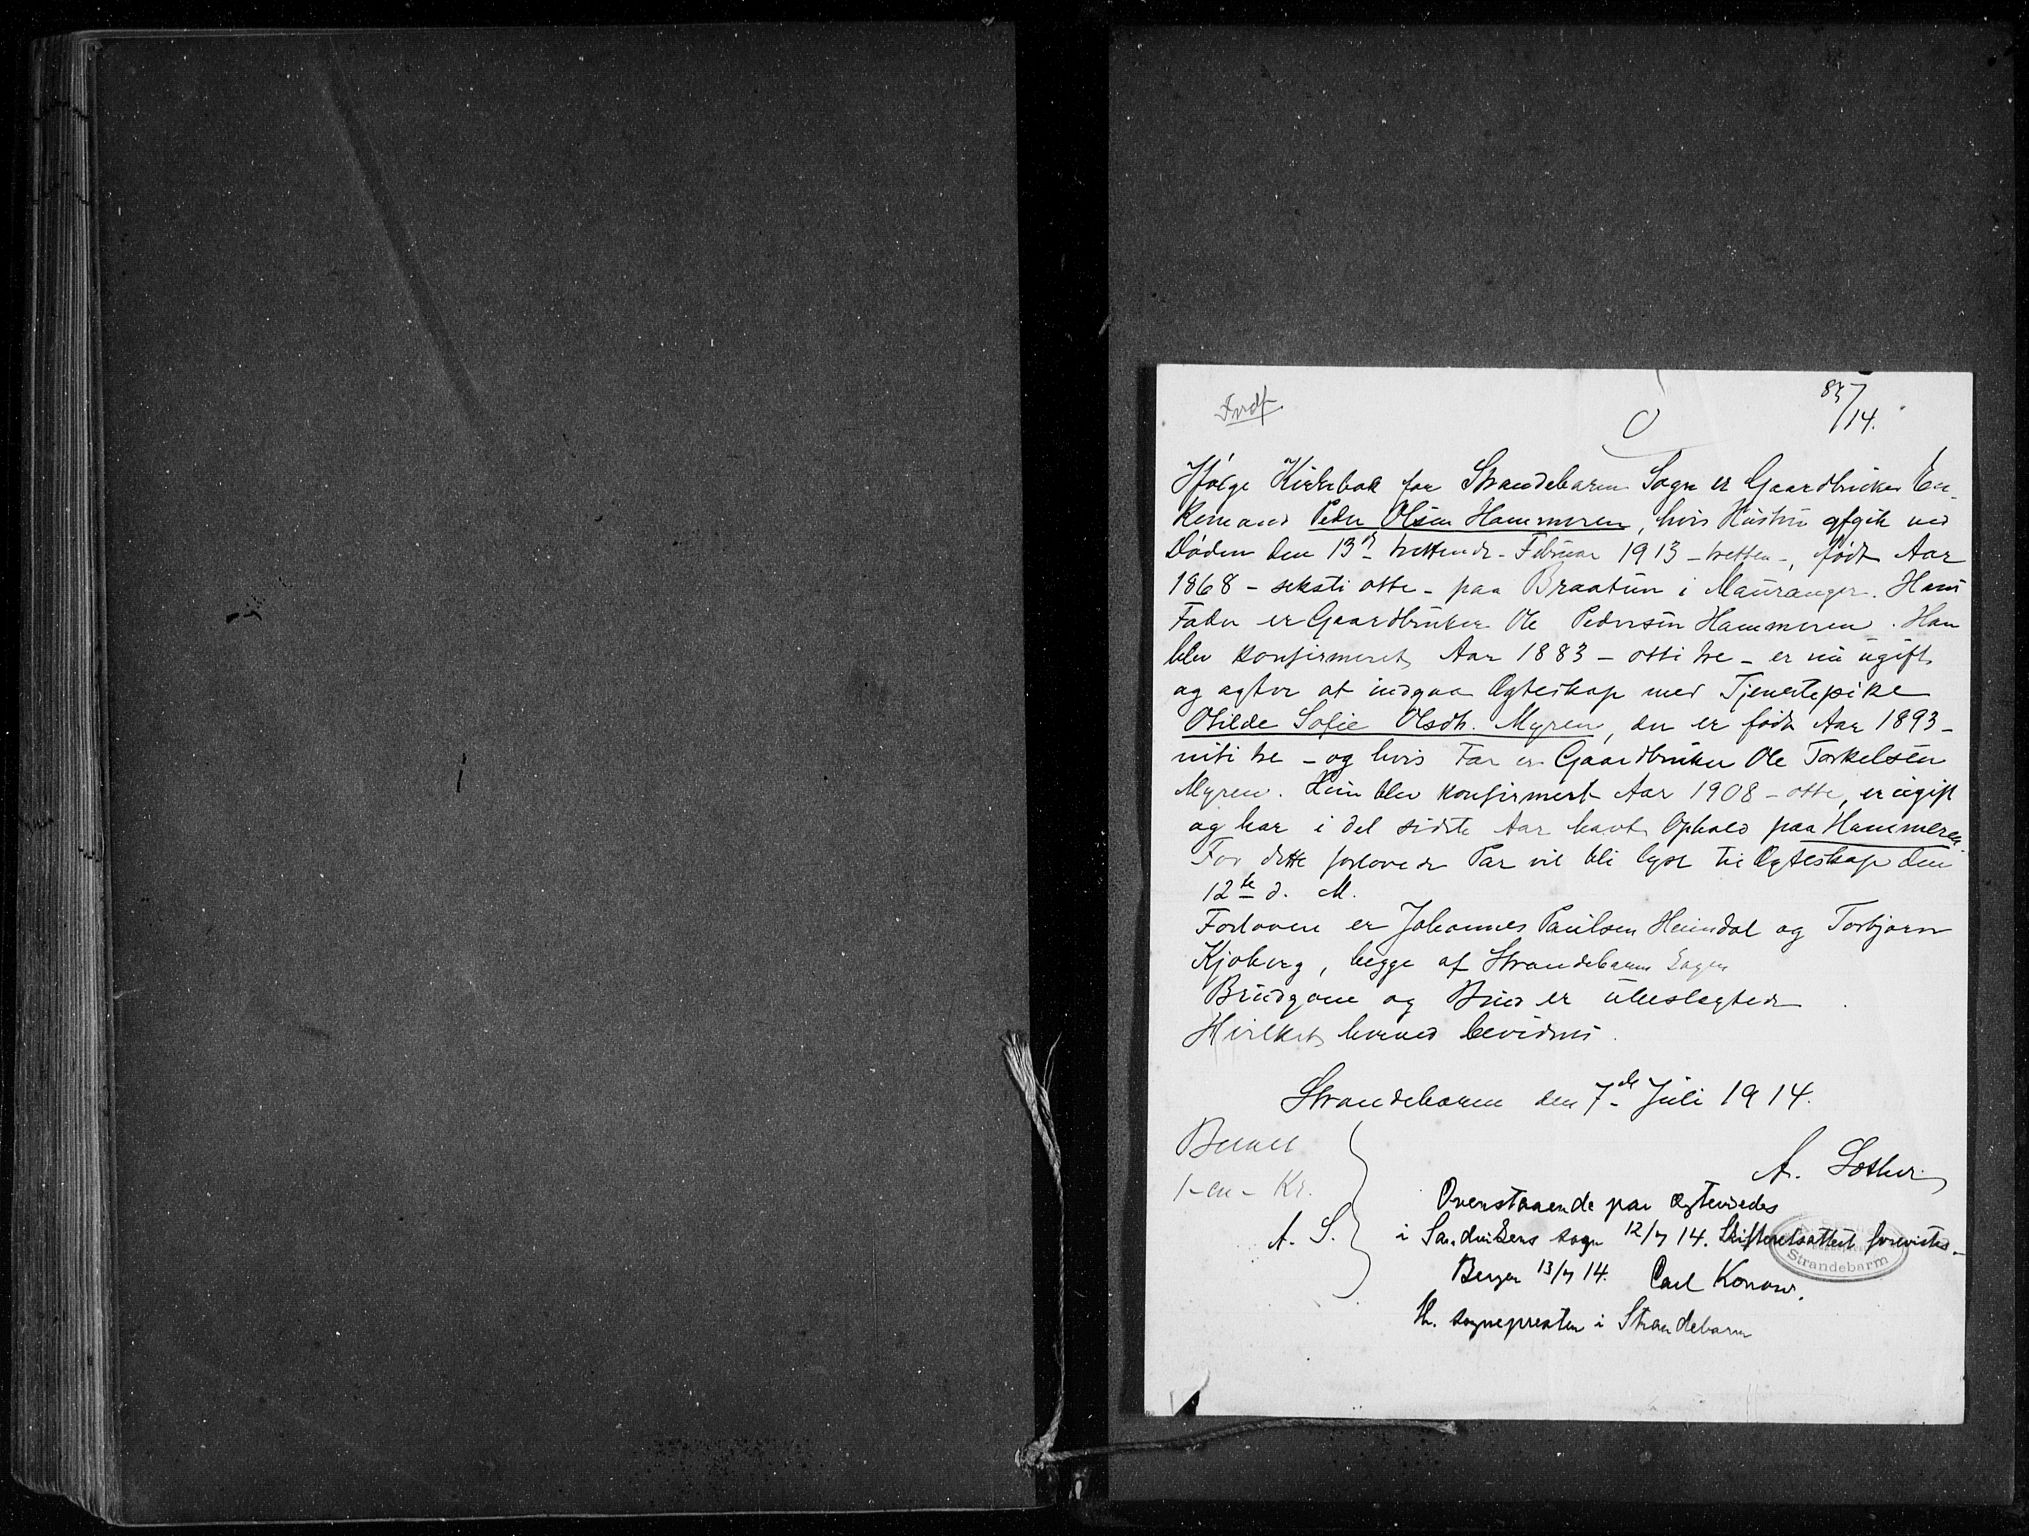 Indf.
87/14.
Ifølge Kirkebok for Strandebarm Sogn er Gaardbruker En-
kemand Peder Olsen Hammeren, hvis Hustru afgik ved
Døden den 13de trettende - Februar 1913 - tretten -, født Aar
1868 - seksti otte - paa Braatun i Mauranger. Hans
Fader er Gaardbruker Ole Pedersen Hammeren. Han
blev konfirmeret Aar 1883 - otti tre - er nu ugift
og agter at indgaa Ægteskap med Tjenestepike
Otilde Sofie Olsdtr. Myren, der er født Aar 1893 -
niti tre - og hvis Far er Gaardbruker Ole Torkelsen
Myren. Hun blev konfirmert Aar 1908 - otte, er ugift
og har i det sidste Aar havt Ophold paa Hammeren.
For dette forlovede Par vil bli lyst til Ægteskap den
12te d. M.
Forlovere er Johannes Paulsen Heimdal og Torbjørn
Kjoberg, begge af Strandebarm Sogn
Brudgom og Brud er ubeslegtede
Hvilket herved bevidnes.
Strandebarm den 7de Juli 1914.
Betalt
1 - en - Kr.
A. S.
A. Sother
Ovenstaaende par ægteviedes
i Sandvikens sogn 12/7 14. Skifteretsattest forevistes.
Bergen 13/7 14. Carl Konow.
Til sognepresten i Strandebarm
Strandebarm